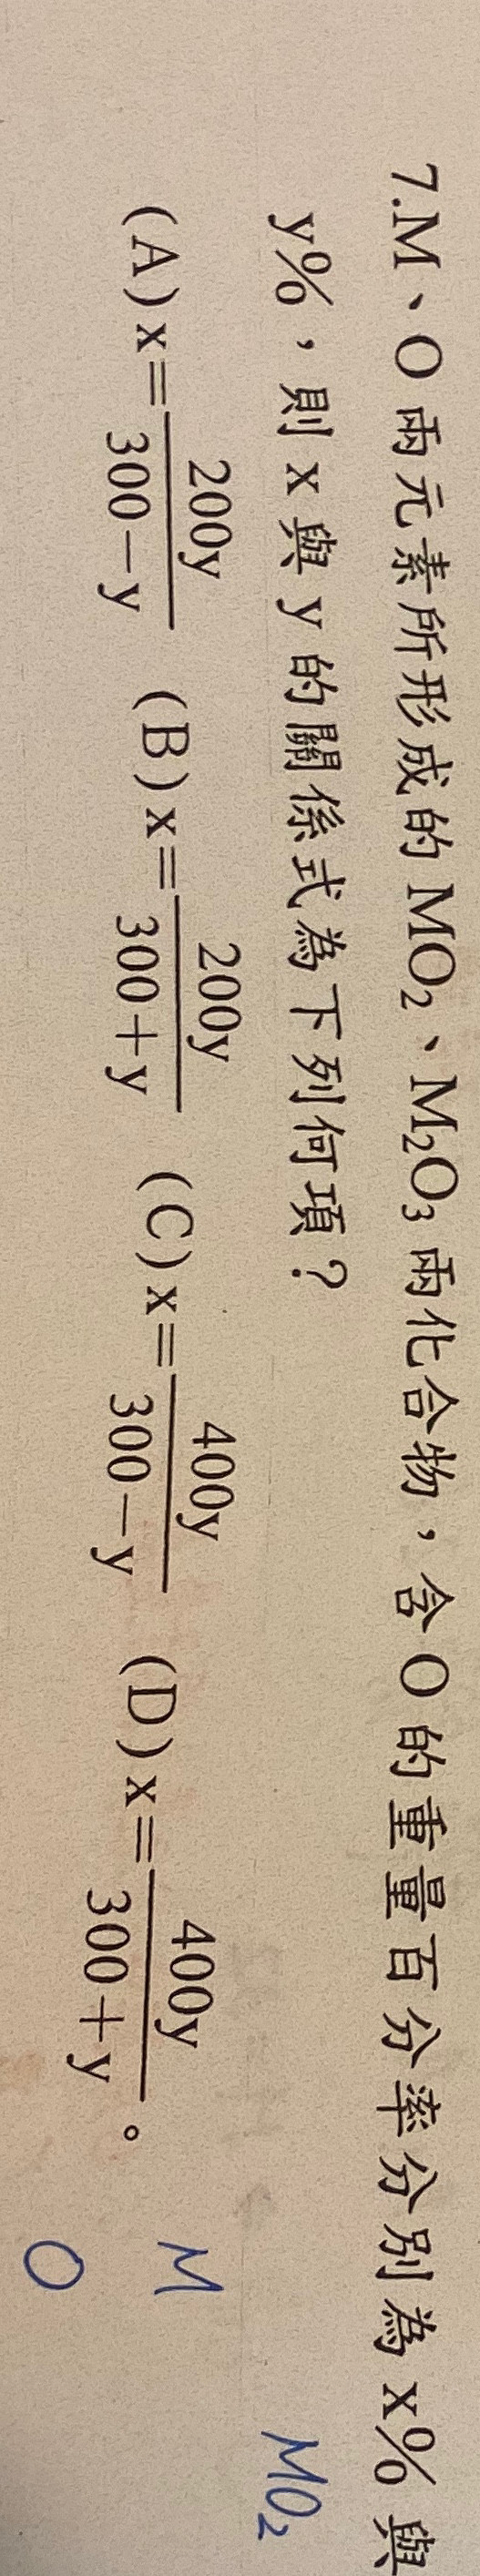 7.M、O 兩元素所形成的 MO₂、M₂O₃ 兩化合物，含 O 的重量百分率分別為 x% 與
y%，則 x 與 y 的關係式為下列何項？
(A) x=200y/300−y (B) x=200y/300+y (C) x=400y/300−y (D) x=400y/300+y。
MO₂
M
O